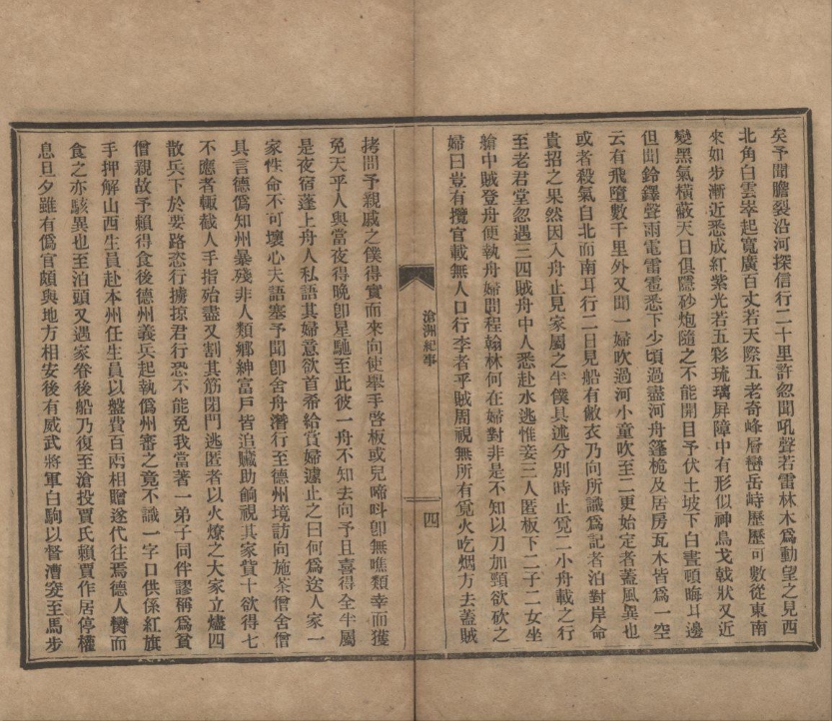 矣予聞膽裂沿河探信行二十里許忽聞吼聲若雷林木爲動望之見西
北角白雲崒起寬廣百丈若天際五老奇峰層巒岳峙歷歷可數從東南
來如步漸近悉成紅紫光若五彩琉璃屛障中有形似神鳥戈戟狀又近
變黑氣橫蔽天日俱隱砂炮隨之不能開目予伏土坡下白晝頓晦耳邊
但聞鈴鐸聲雨電雷雹悉下少頃過盡河舟篷桅及居房瓦木皆爲一空
云有飛墮數千里外又聞一婦吹過河小童吹至二更始定者蓋風異也
或者殺氣自北而南耳行二日見船有敝衣乃向所識爲記者泊對岸命
貴招之果然因入舟止見家屬之半僕具述分別時止覓二小舟載之行
至老君堂忽遇三四賊舟中人悉赴水逃惟妾三人匿板下二子二女坐
艙中賊登舟便執舟婦問程翰林何在婦對非是不知以刀加頸欲砍之
婦曰豈有攬官載無人口行李者乎賊周視無所有覓火吃烟方去蓋賊
滄洲紀事
四
拷問予親戚之僕得實而來向使舉手啓板或兒啼呌卽無噍類幸而獲
免天乎人與當夜得晚卽星馳至此彼一舟不知去向予且喜得全半屬
是夜宿蓬上舟人私語其婦意欲首希給賞婦遽止之曰何爲送人家一
家性命不可壞心夫語塞予聞卽舍舟潛行至德州境訪向施茶僧舍僧
具言德僞知州暴殘非人類鄉紳富戶皆追贓助餉視其家貲十欲得七
不應者輙截人手指殆盡又割其筋閉門逃匿者以火燎之大家立燼四
散兵下於要路恣行擄掠君行恐不能免我當著一弟子同伴謬稱爲貧
僧親故予賴得食後德州義兵起執僞州審之竟不識一字口供係紅旗
手押解山西生員赴本州任生員以盤費百兩相贈遂代往焉德人臠而
食之亦駭異也至泊頭又遇家眷後船乃復至滄投賈氏賴賈作居停權
息旦夕雖有僞官頗與地方相安後有威武將軍白駒以督漕突至馬步